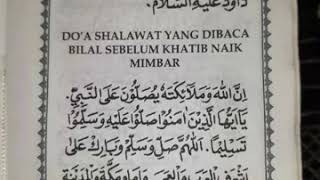 داود عليه السلام.
DO'A SHALAWAT YANG DIBACA
BILAL SEBELUM KHATIB NAIK
MIMBAR
اِنَّ اللهَ وَمَلَائِكَتَهُ يُصَلُّوْنَ عَلَى النَّبِيِّ.
يَاۤيُّهَا الَّذِيْنَ اٰمَنُوْا صَلُّوْا عَلَيْهِ وَسَلِّمُوْا
تَسْلِيْمًا. اَللّٰهُمَّ صَلِّ وَسَلِّمْ وَبَارِكْ عَلٰى